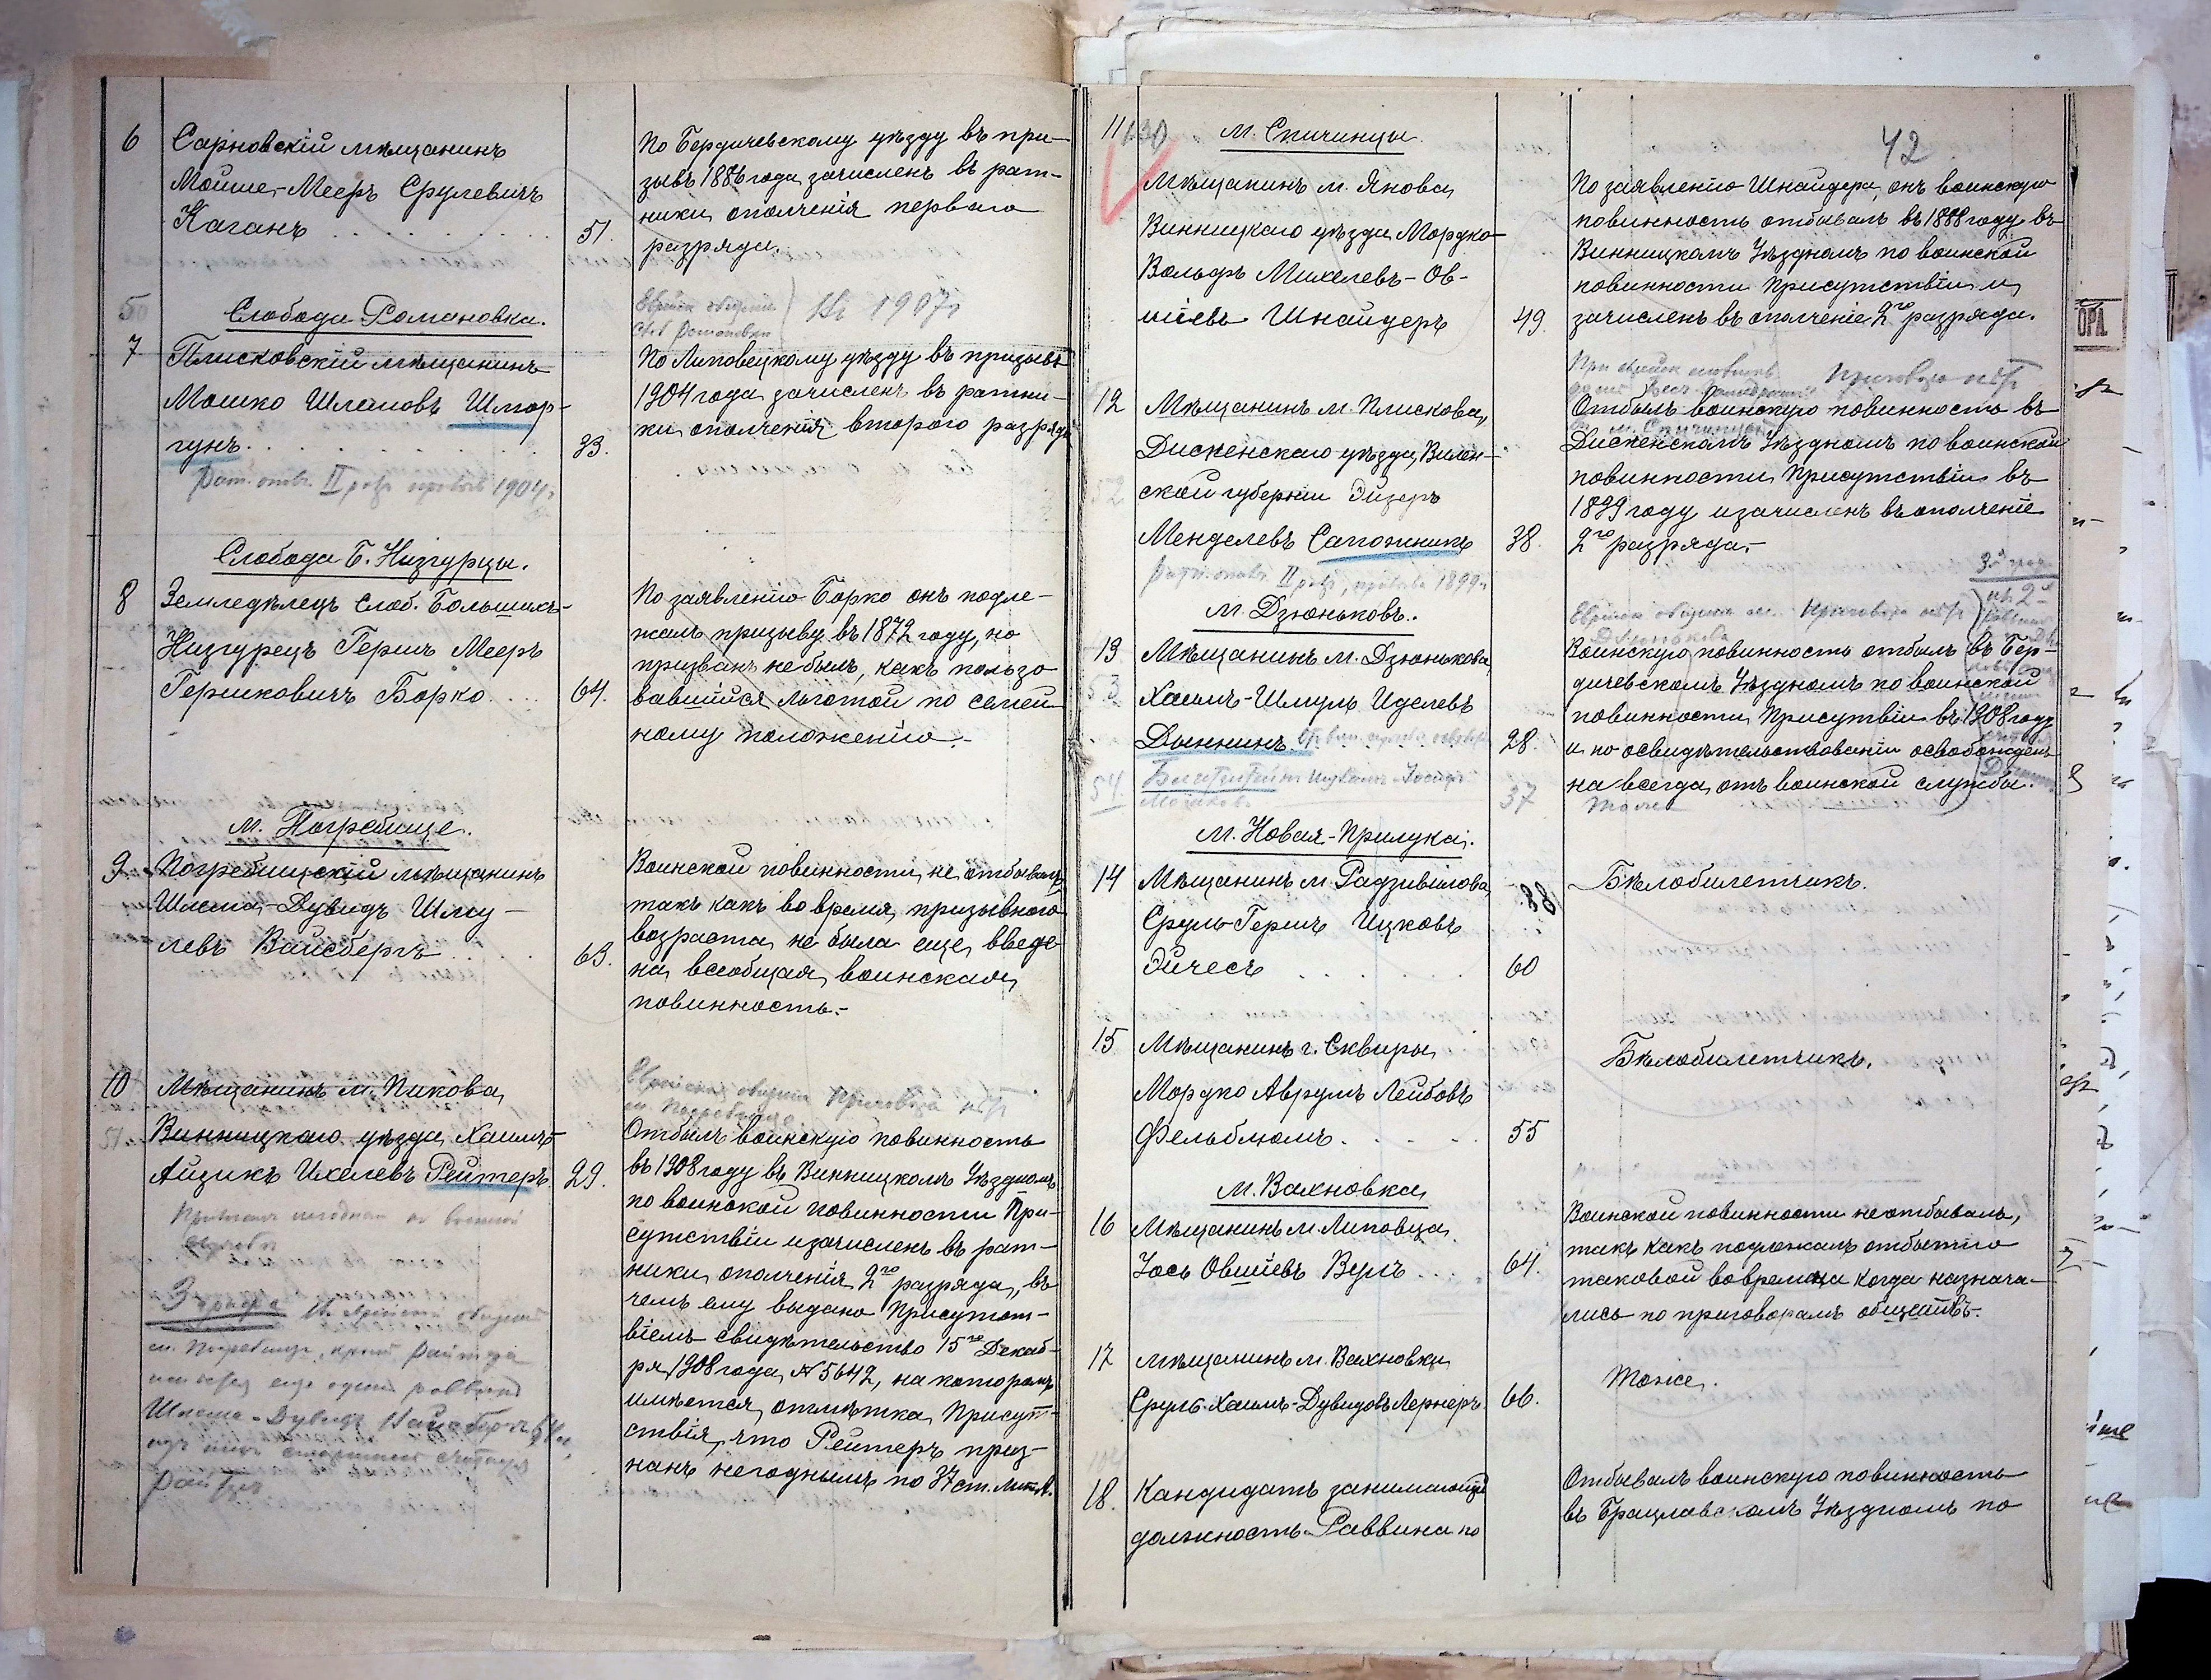 6
Сарновскій мѣщанинъ
Мойше-Мееръ Срулевичъ
Каганъ
51.
По Бердичевскому уѣзду въ при-
зывъ 1886 года зачисленъ въ рат-
ники ополченія перваго
разряда.
50
Слобода Романовка.
На 1907 г
7
Плисковскій мѣщанинъ
Мошко Шлемовъ Шмор-
гунъ.
33.
Рат. опол. II разр. призыва 1904 г.
По Липовецкому уѣзду въ призывъ
1904 года зачисленъ въ ратни-
ки ополченія второго разряда
Слобода Б. Низгурцы.
8
Земледѣлецъ Слоб. Большихъ-
Низгурецъ Гершъ Мееръ
Гершковичъ Борко.
64.
По заявленію Борко онъ подле-
жалъ призыву въ 1872 году, но
призванъ не былъ, какъ пользо
вавшійся льготой по семей
ному положенію.-
м. Погребище.
9
Погребищскій мѣщанинъ
Шлема-Дувидъ Шму-
левъ Вайсбергъ
63.
Воинской повинности не отбывалъ
такъ какъ во время призывного
возраста не была еще введе-
на всеобщая воинская
повинность.-
10
Мѣщанинъ м. Пикова,
51
Винницкаго уѣзда Хаимъ-
Айзикъ Ихелевъ Рейтеръ.
29.
м. Погребище
Отбылъ воинскую повинность
въ 1908 году въ Винницкомъ Уѣздномъ
по воинской повинности При-
сутствіи и зачисленъ въ рат-
ники ополченія 2го разряда, въ
чемъ ему выдано Присутст-
віемъ свидѣтельство 15го Декаб-
ря 1908 года № 5642, на которомъ
имѣется отмѣтка Присут-
ствія, что Рейтеръ приз-
нанъ негоднымъ по 37 ст. лит. А.
м. Погребище, кромѣ Рейтера
еще одинъ раввинъ
Шлема-Дувидъ Вайсбергъ
11
130
м. Спичинцы
42
Мѣщанинъ м. Янова,
Винницкаго уѣзда Мордко-
Вольфъ Михелевъ-Ов-
шіевъ Шнайдеръ
49.
По заявленію Шнайдера, онъ воинскую
повинность отбывалъ въ 1888 году въ
Винницкомъ Уѣздномъ по воинской
повинности Присутствіи и
зачисленъ въ ополченіе 2го разряда.
12
Мѣщанинъ м. Плискова,
Дисненскаго уѣзда, Вилен-
ской губерніи Эйзеръ
Менделевъ Сапожникъ
38.
52
Рат. опол. II разр., призыва 1899 г.
Отбылъ воинскую повинность въ
Дисненскомъ Уѣздномъ по воинской
повинности Присутствіи въ
1899 году и зачисленъ въ ополченіе
2го разряда.-
м. Дзюньковъ.
13
Мѣщанинъ м. Дзюнькова,
53
Хаимъ-Шмуль Иделевъ
Дыннинъ.
28.
Воинскую повинность отбылъ въ Бер-
дичевскомъ Уѣздномъ по воинской
повинности Присутвіи въ 1908 году
и по освидѣтельствованіи освобожденъ
на всегда отъ воинской службы.
54.
37
Тоже
м. Новая-Прилука.
14
Мѣщанинъ м. Радзивилова,
88
Сруль-Гершъ Ицковъ
Эйчесъ
60
Бѣлобилетчикъ.
15
Мѣщанинъ г. Сквиры
Мордко Аврумъ Лейбовъ
Фельблюмъ.
55
Бѣлобилетчикъ.
м. Вахновка
16
Мѣщанинъ м. Липовца
Іось Овшіевъ Вулъ
64.
Воинской повинности не отбывалъ,
такъ какъ подлежалъ отбытію
таковой во времена когда назнача-
лись по приговорамъ обществъ.
17
Мѣщанинъ м. Вахновки
Сруль-Хаимъ-Дувидовъ Лернеръ
66.
Тоже.
18.
Кандидатъ занимающій
должность Раввина по
Отбывалъ воинскую повинность
въ Брацлавскомъ Уѣздномъ по